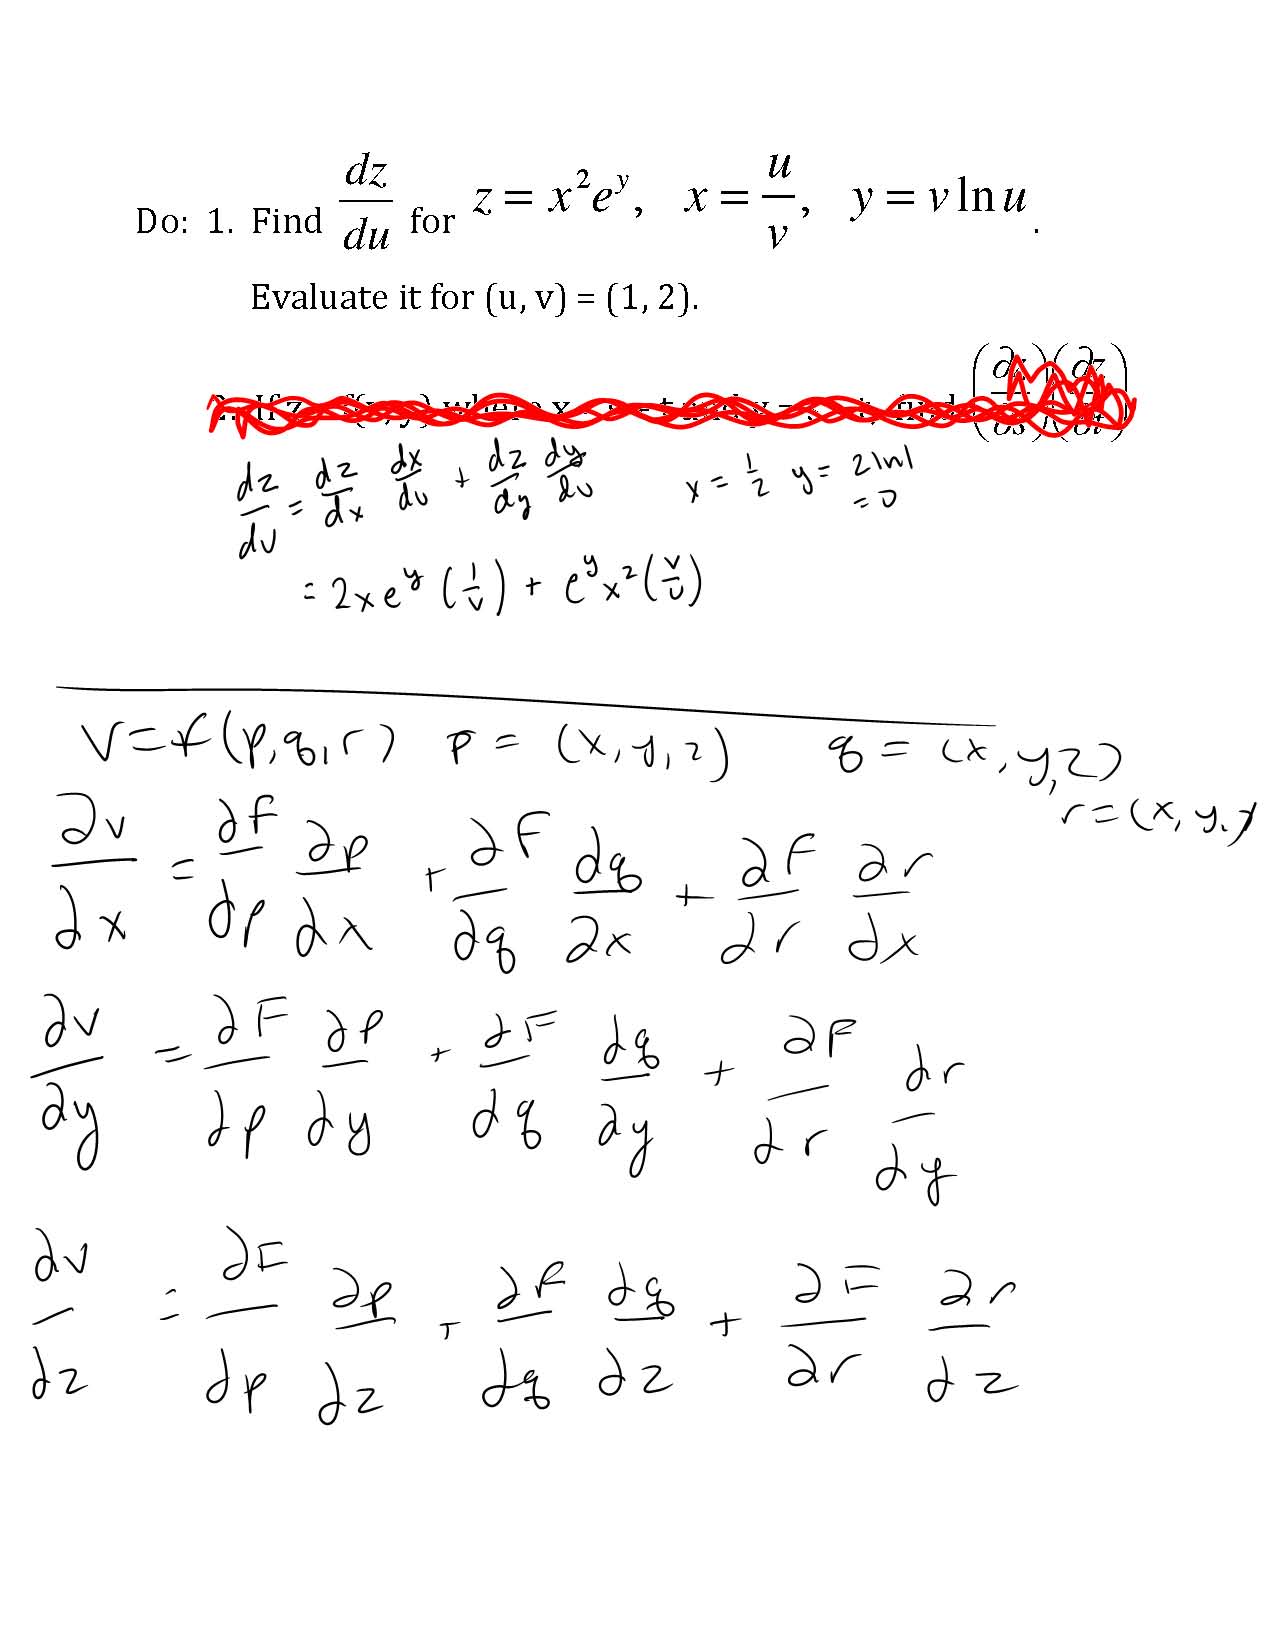 Do: 1. Find dz/du for z = x²e^y, x = u/v, y = v ln u.
Evaluate it for (u, v) = (1, 2).
2. If z = f(x, y) where x = s - t and y = find (∂z/∂s)(∂z/∂t)
dz/du = dz/dx dx/du + dz/dy dy/du x = 1/2 y = 2ln1
= 0
= 2xe^y (1/v) + e^y x² (v/u)
V = f(p, q, r) p = (x, y, z) q = (x, y, z)
r = (x, y, )
∂v/∂x = ∂F/∂p ∂p/∂x + ∂F/∂q ∂q/∂x + ∂F/∂r ∂r/∂x
∂v/∂y = ∂F/∂p ∂p/∂y + ∂F/∂q ∂q/∂y + ∂F/∂r ∂r/∂y
∂v/∂z = ∂F/∂p ∂p/∂z + ∂F/∂q ∂q/∂z + ∂F/∂r ∂r/∂z